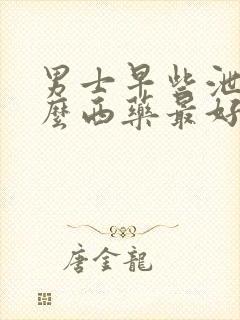 男士早些泄
麼西藥最好
唐金龍